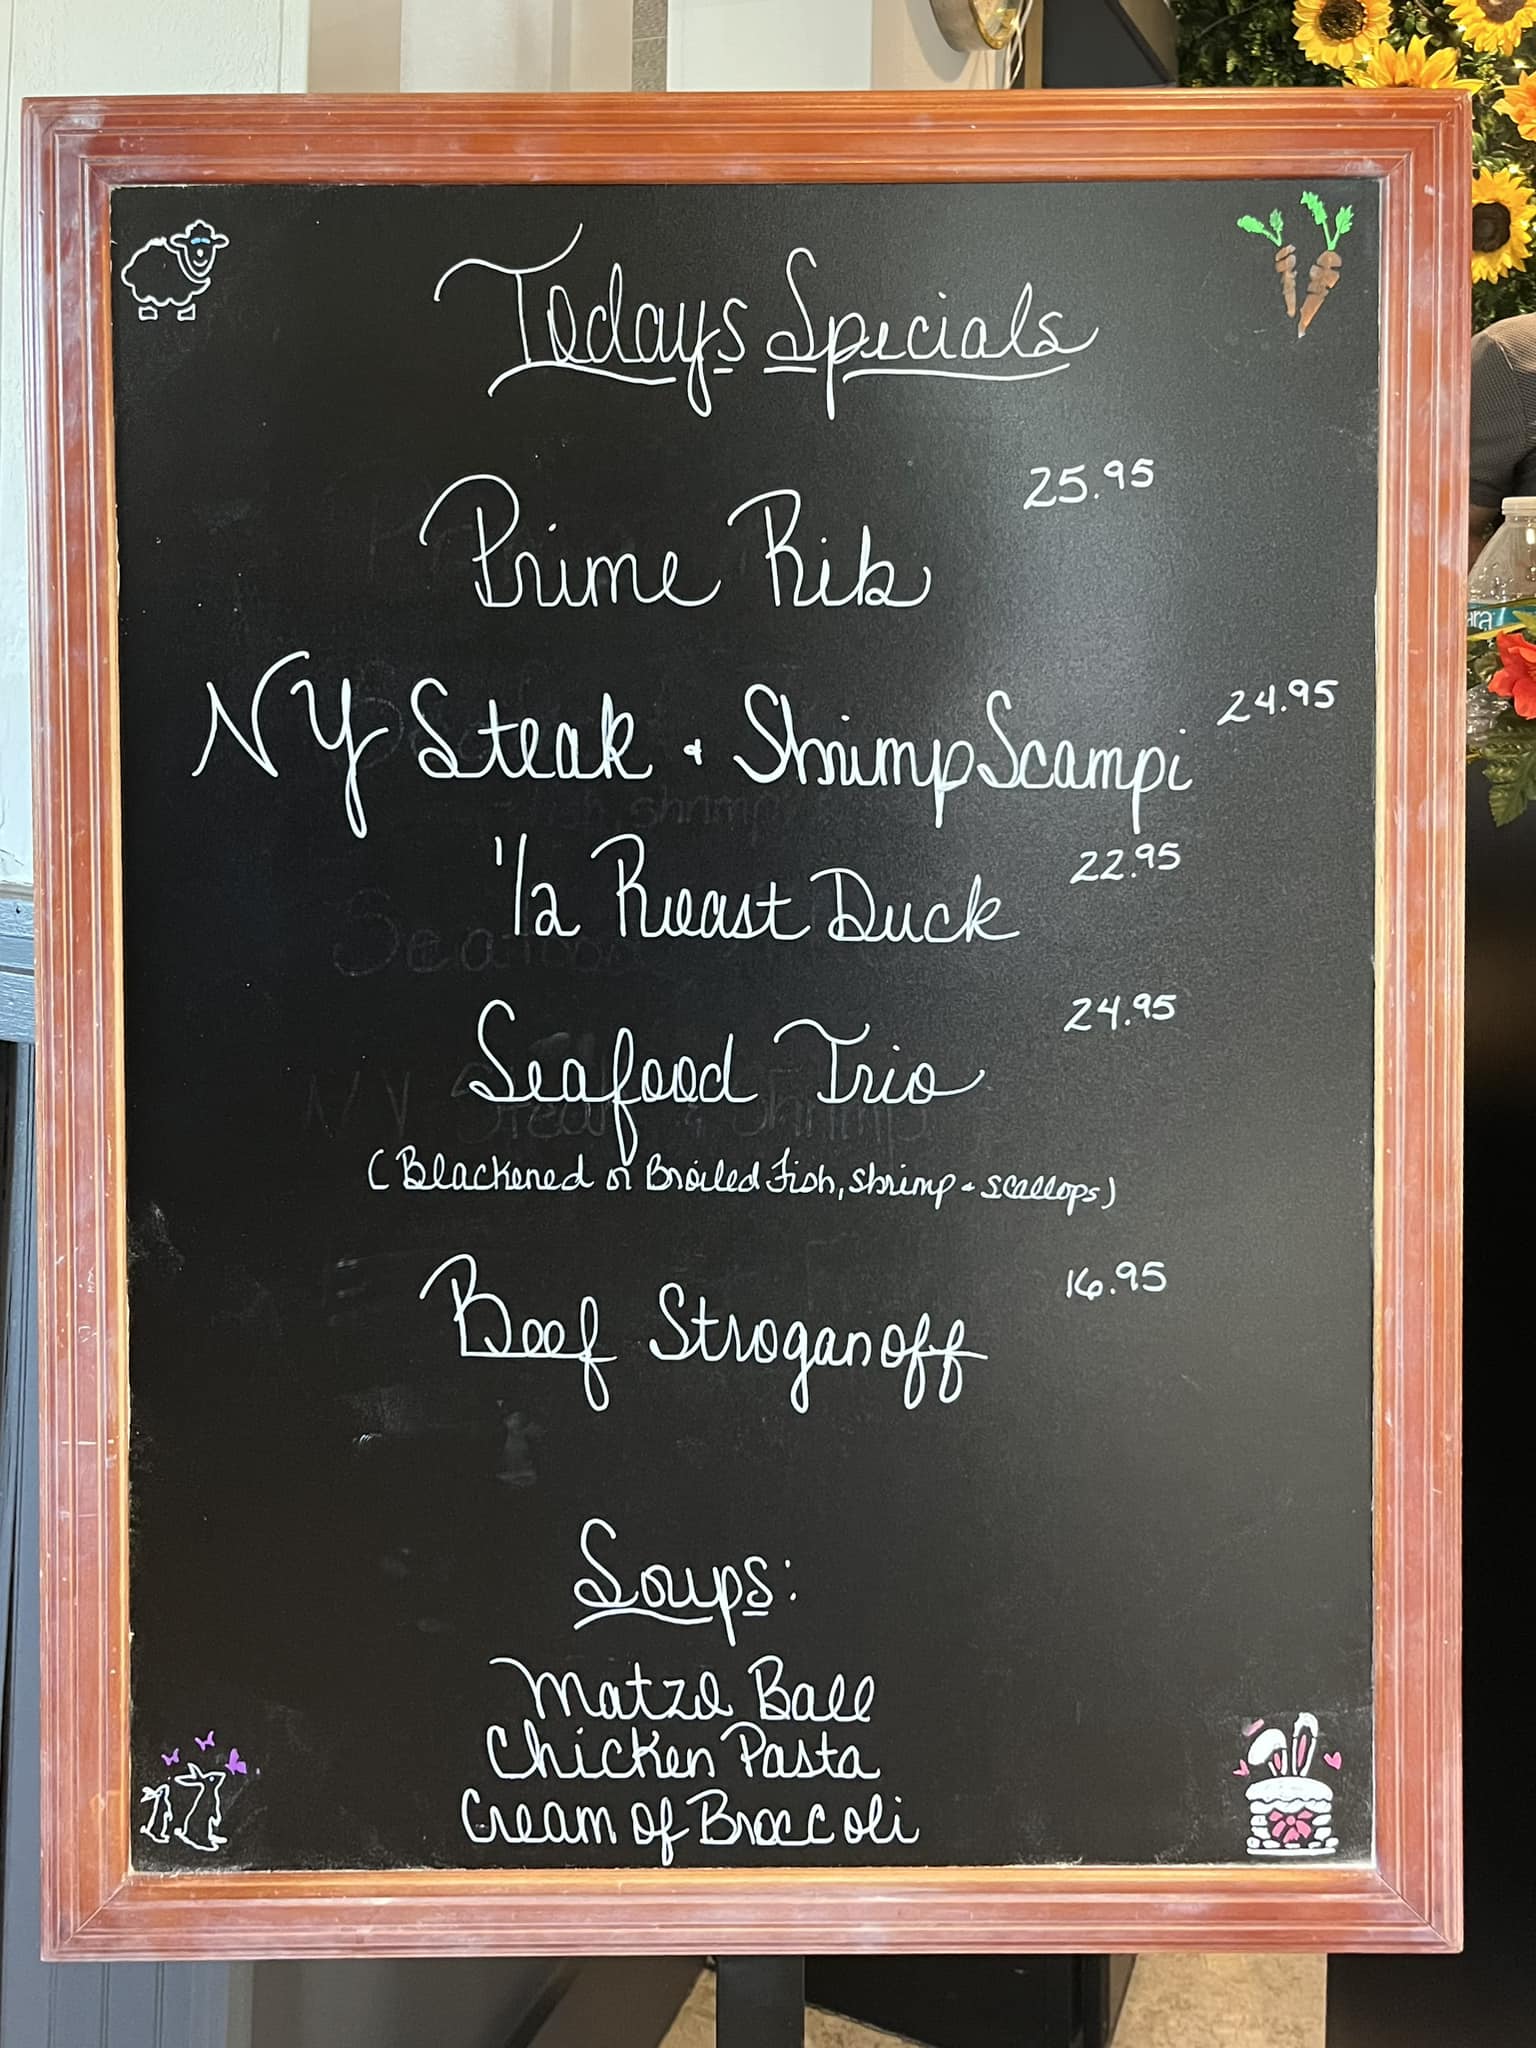 Todays Specials
25.95
Prime Rib
NY Steak & Shrimp Scampi 24.95
1/2 Roast Duck 22.95
Seafood Trio 24.95
(Blackened or Broiled Fish, shrimp & scallops)
Beef Stroganoff 16.95
Soups:
Matzo Ball
Chicken Pasta
Cream of Broccoli